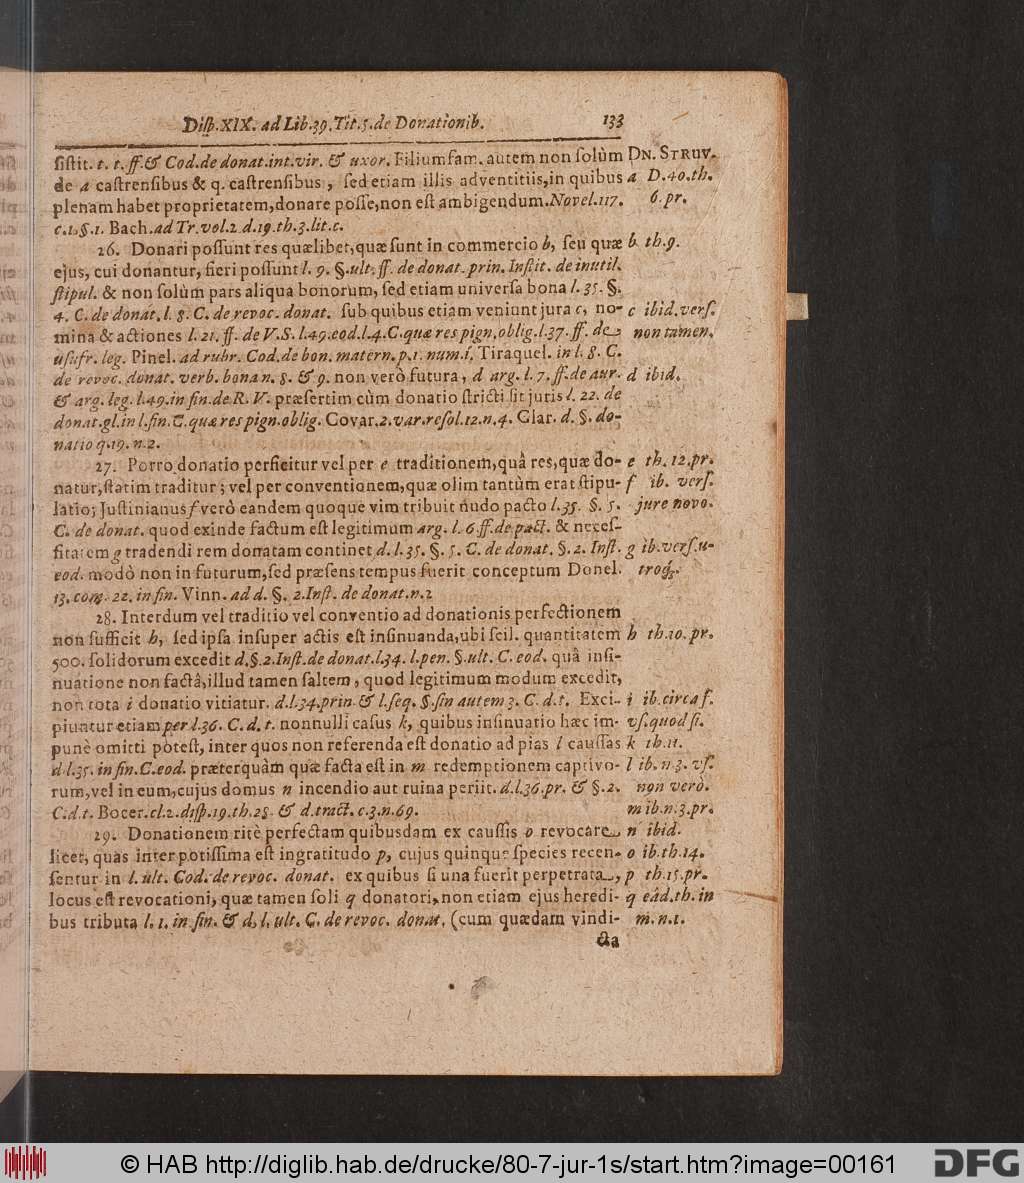 Diſp. XIX. ad Lib. 39. Tit. 5. de Donationib. 133
ſiſtit. t. t. ff. & Cod. de donat. int. vir. & uxor. Filiumfam. autem non ſolùm
de a caſtrenſibus & q. caſtrenſibus, ſed etiam illis adventitiis, in quibus
plenam habet proprietatem, donare poſſe, non eſt ambigendum. Novel. 117.
c. 1. §. 1. Bach. ad Tr. vol. 2. d. 19. th. 3. lit. c.
26. Donari poſſunt res quælibet, quæ ſunt in commercio b, ſeu quæ
ejus, cui donantur, fieri poſſunt l. 9. §. ult. ff. de donat. prin. Inſtit. de inutil.
ſtipul. & non ſolùm pars aliqua bonorum, ſed etiam univerſa bona l. 35. §.
4. C. de donat. l. 8. C. de revoc. donat. ſub quibus etiam veniunt jura c, no-
mina & actiones l. 21. ff. de V. S. l. 49. eod. l. 4. C. quæ res pign. oblig. l. 37. ff. de
uſufr. leg. Pinel. ad rubr. Cod. de bon. matern. p. 1. num. 1. Tiraquel. in l. 8. C.
de revoc. donat. verb. bona n. 8. & 9. non verò futura, d arg. l. 7. ff. de aur.
& arg. leg. l. 49. in fin. de R. V. præſertim cùm donatio ſtricti ſit juris l. 22. de
donat. gl. in l. fin. C. quæ res pign. oblig. Covar. 2. var. reſol. 12. n. 4. Glar. d. §. do-
natio q. 19. n. 2.
27. Porro donatio perficitur vel per e traditionem, quâ res, quæ do-
natur, ſtatim traditur; vel per conventionem, quæ olim tantùm erat ſtipu-
latio; Juſtinianus f verò eandem quoque vim tribuit nudo pacto l. 35. §. 5.
C. de donat. quod exinde factum eſt legitimum arg. l. 6 ff. de pact. & neceſ-
ſitatem g tradendi rem donatam continet d. l. 35. §. 5. C. de donat. §. 2. Inſt.
eod. modò non in futurum, ſed præſens tempus fuerit conceptum Donel.
13. com. 22. in fin. Vinn. ad d. §. 2. Inſt. de donat. n. 2
28. Interdum vel traditio vel conventio ad donationis perfectionem
non ſufficit h, ſed ipſa inſuper actis eſt inſinuanda, ubi ſcil. quantitatem
500. ſolidorum excedit d. §. 2. Inſt. de donat. l. 34. l. pen. §. ult. C. eod. quâ inſi-
nuatione non factâ, illud tamen ſaltem, quod legitimum modum excedit,
non tota i donatio vitiatur. d. l. 34. prin. & l. ſeq. §. ſin autem 3. C. d. t. Exci-
piuntur etiam per l. 36. C. d. t. nonnulli caſus k, quibus inſinuatio hæc im-
punè omitti poteſt, inter quos non referenda eſt donatio ad pias l cauſſas
d l. 35. in fin. C. eod. præterquàm quæ facta eſt in m redemptionem captivo-
rum, vel in eum, cujus domus n incendio aut ruina periit. d. l. 36. pr. & §. 2.
C. d. t. Bocer. cl. 2. diſp. 19. th. 28. & d. tract. c. 3. n. 69.
29. Donationem ritè perfectam quibusdam ex cauſſis o revocare
licet, quas inter potiſſima eſt ingratitudo p, cujus quinque ſpecies recen-
ſentur in l. ult. Cod. de revoc. donat. ex quibus ſi una fuerit perpetrata,
locus eſt revocationi, quæ tamen ſoli q donatori, non etiam ejus heredi-
bus tributa l. 1. in fin. & d. l. ult. C. de revoc. donat. (cum quædam vindi-
&a
DN. STRUV.
a D. 40. th.
6. pr.
b. th. 9.
c ibid. verſ.
non tamen.
d ibid.
e th. 12. pr.
f ib. verſ.
jure novo.
g ib. verſ. u-
troq;.
h th. 10. pr.
i ib. circa f.
vſ. quod ſi.
k th. 11.
l ib. n. 3. vſ.
non verò.
m ib. n. 3. pr.
n ibid.
o ib. th. 14.
p th. 15. pr.
q eâd. th. in
m. n. 1.
© HAB http://diglib.hab.de/drucke/80-7-jur-1s/start.htm?image=00161
DFG